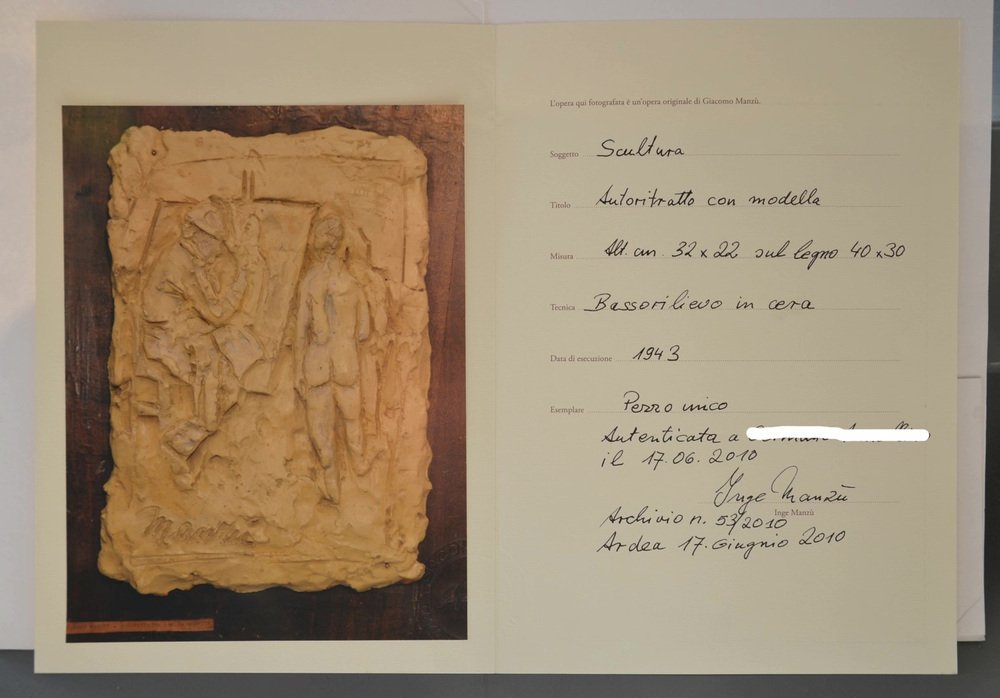 Manzù
L'opera qui fotografata è un'opera originale di Giacomo Manzù.
Soggetto Scultura
Titolo Autoritratto con modella
Misura Alt. cm. 32 x 22 sul legno 40 x 30
Tecnica Bassorilievo in cera
Data di esecuzione 1943
Esemplare Pezzo unico
Autenticata a
il 17.06.2010
Inge Manzù
Inge Manzù
Archivio n. 53/2010
Ardea 17. Giugno 2010